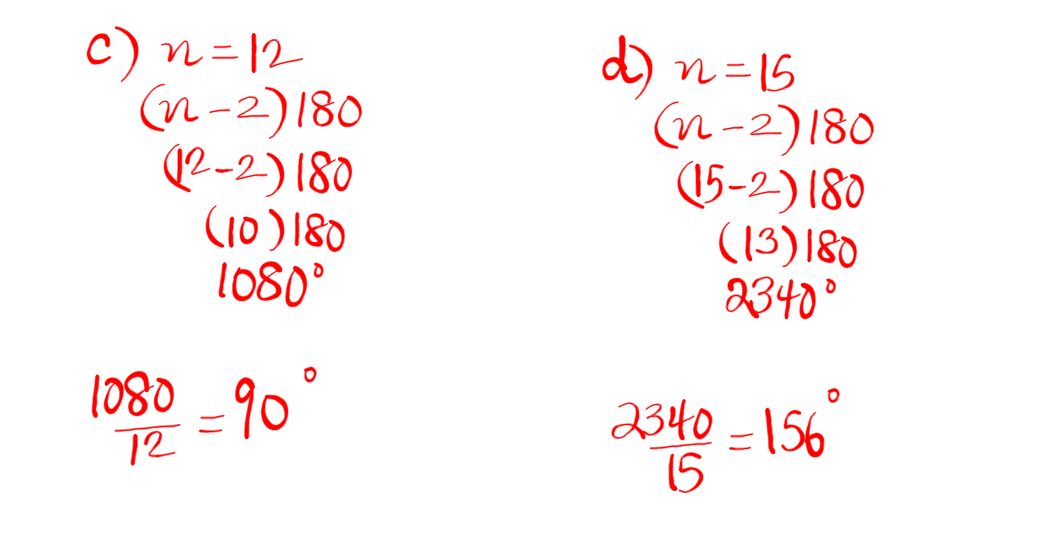 c) n = 12
(n - 2) 180
(12 - 2) 180
(10) 180
1080°
1080/12 = 90°
d) n = 15
(n - 2) 180
(15 - 2) 180
(13) 180
2340°
2340/15 = 156°